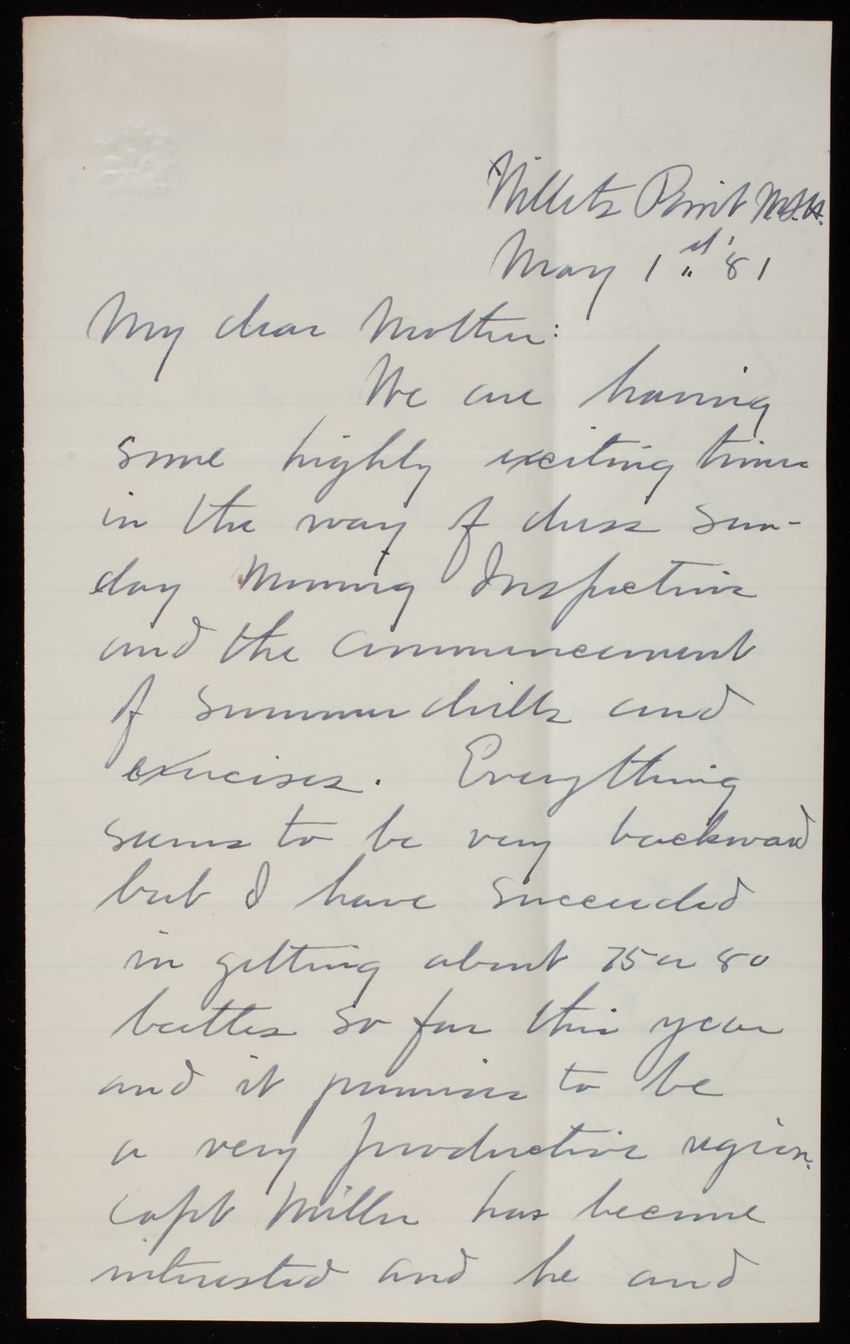 Willets Point N.Y.H.
May 1st '81
My dear Mother:
We are having
some highly exciting times
in the way of dress Sun-
day Morning Inspections
and the commencement
of summer drills and
exercises. Everything
seems to be very backward
but I have succeeded
in getting about 75 or 80
beetles so far this year
and it promises to be
a very productive region.
Capt Miller has become
interested and he and